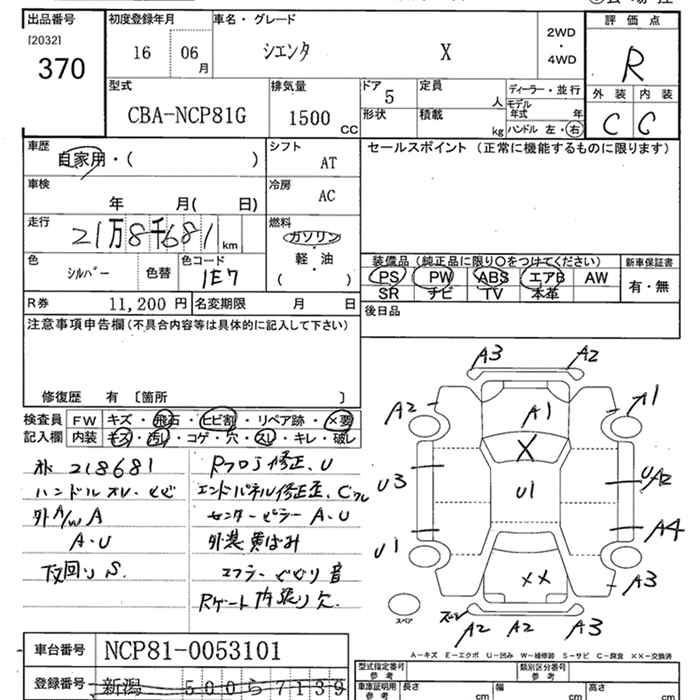 出品番号 初度登録年月 車名・グレード 2WD・4WD 評価点
[2032] 370 16 06月 シエンタ X R
型式 排気量 ドア 定員 ディーラー・並行 外装 内装
CBA-NCP81G 1500cc 5 人 モデル年式 年 C C
形状 積載 kg ハンドル 左・右
車歴 シフト セールスポイント(正常に機能するものに限ります)
自家用・( ) AT
車検 冷房
年 月( 日) AC
走行 燃料
21万8千681 km ガソリン・軽・油( )
色 色コード 装備品(純正品に限り○をつけてください) 新車保証書
シルバー 色替 1E7 PS PW ABS エアB AW 有・無
SR ナビ TV 本革
R券 11,200円 名変期限 月 日 後日品
注意事項申告欄(不具合内容等は具体的に記入して下さい)
修復歴 有 〔箇所 〕
検査員 FW キズ・飛石・ヒビ割・リペア跡・×要
記入欄 内装 キズ・汚れ・コゲ・穴・スレ・キレ・破レ
218681 修正、U
ハンドルスレ
外A/W A センターピラー A・U
A・U 外装黄ばみ
下回り S 音
Rゲート内張り欠
A3 A2
A2 A1 A1
X
U3 U1 UA2
U1 A4
XX A3
スペア A2 A2 A3
A-キズ E-エクボ U-凹み W-補修跡 S-サビ C-腐食 XX-交換済
車台番号 NCP81-0053101
登録番号 新潟 500 ら 7139
型式指定番号 参考 類別区分番号 参考
車庫証明用 参考 長さ cm 幅 cm 高さ cm